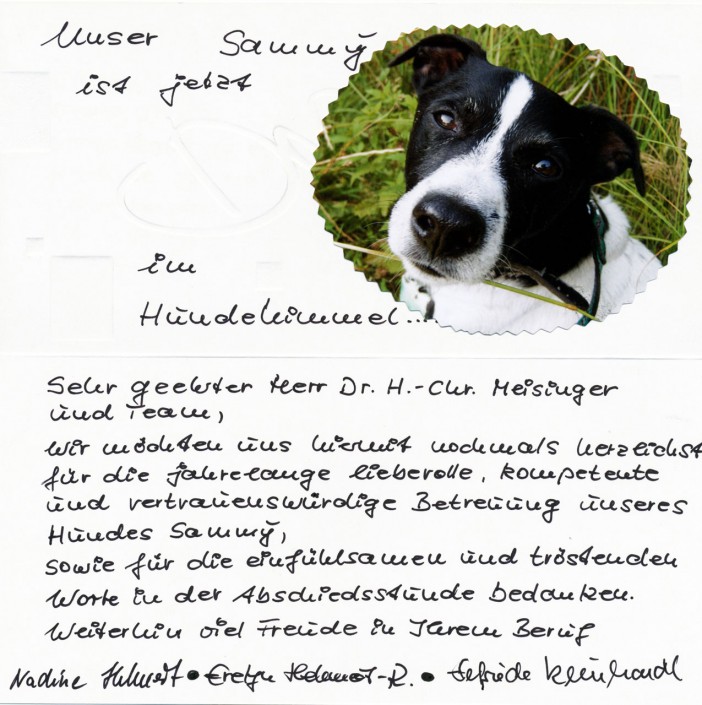 Unser Sammy
ist jetzt
im
Hundehimmel....
Sehr geehrter Herr Dr. H.-Chr. Meisinger
und Team,
wir möchten uns hiermit nochmals herzlichst
für die jahrelange liebevolle, kompetente
und vertrauenswürdige Betreuung unseres
Hundes Sammy,
sowie für die einfühlsamen und tröstenden
Worte in der Abschiedsstunde bedanken.
Weiterhin viel Freude in Ihrem Beruf
Nadine